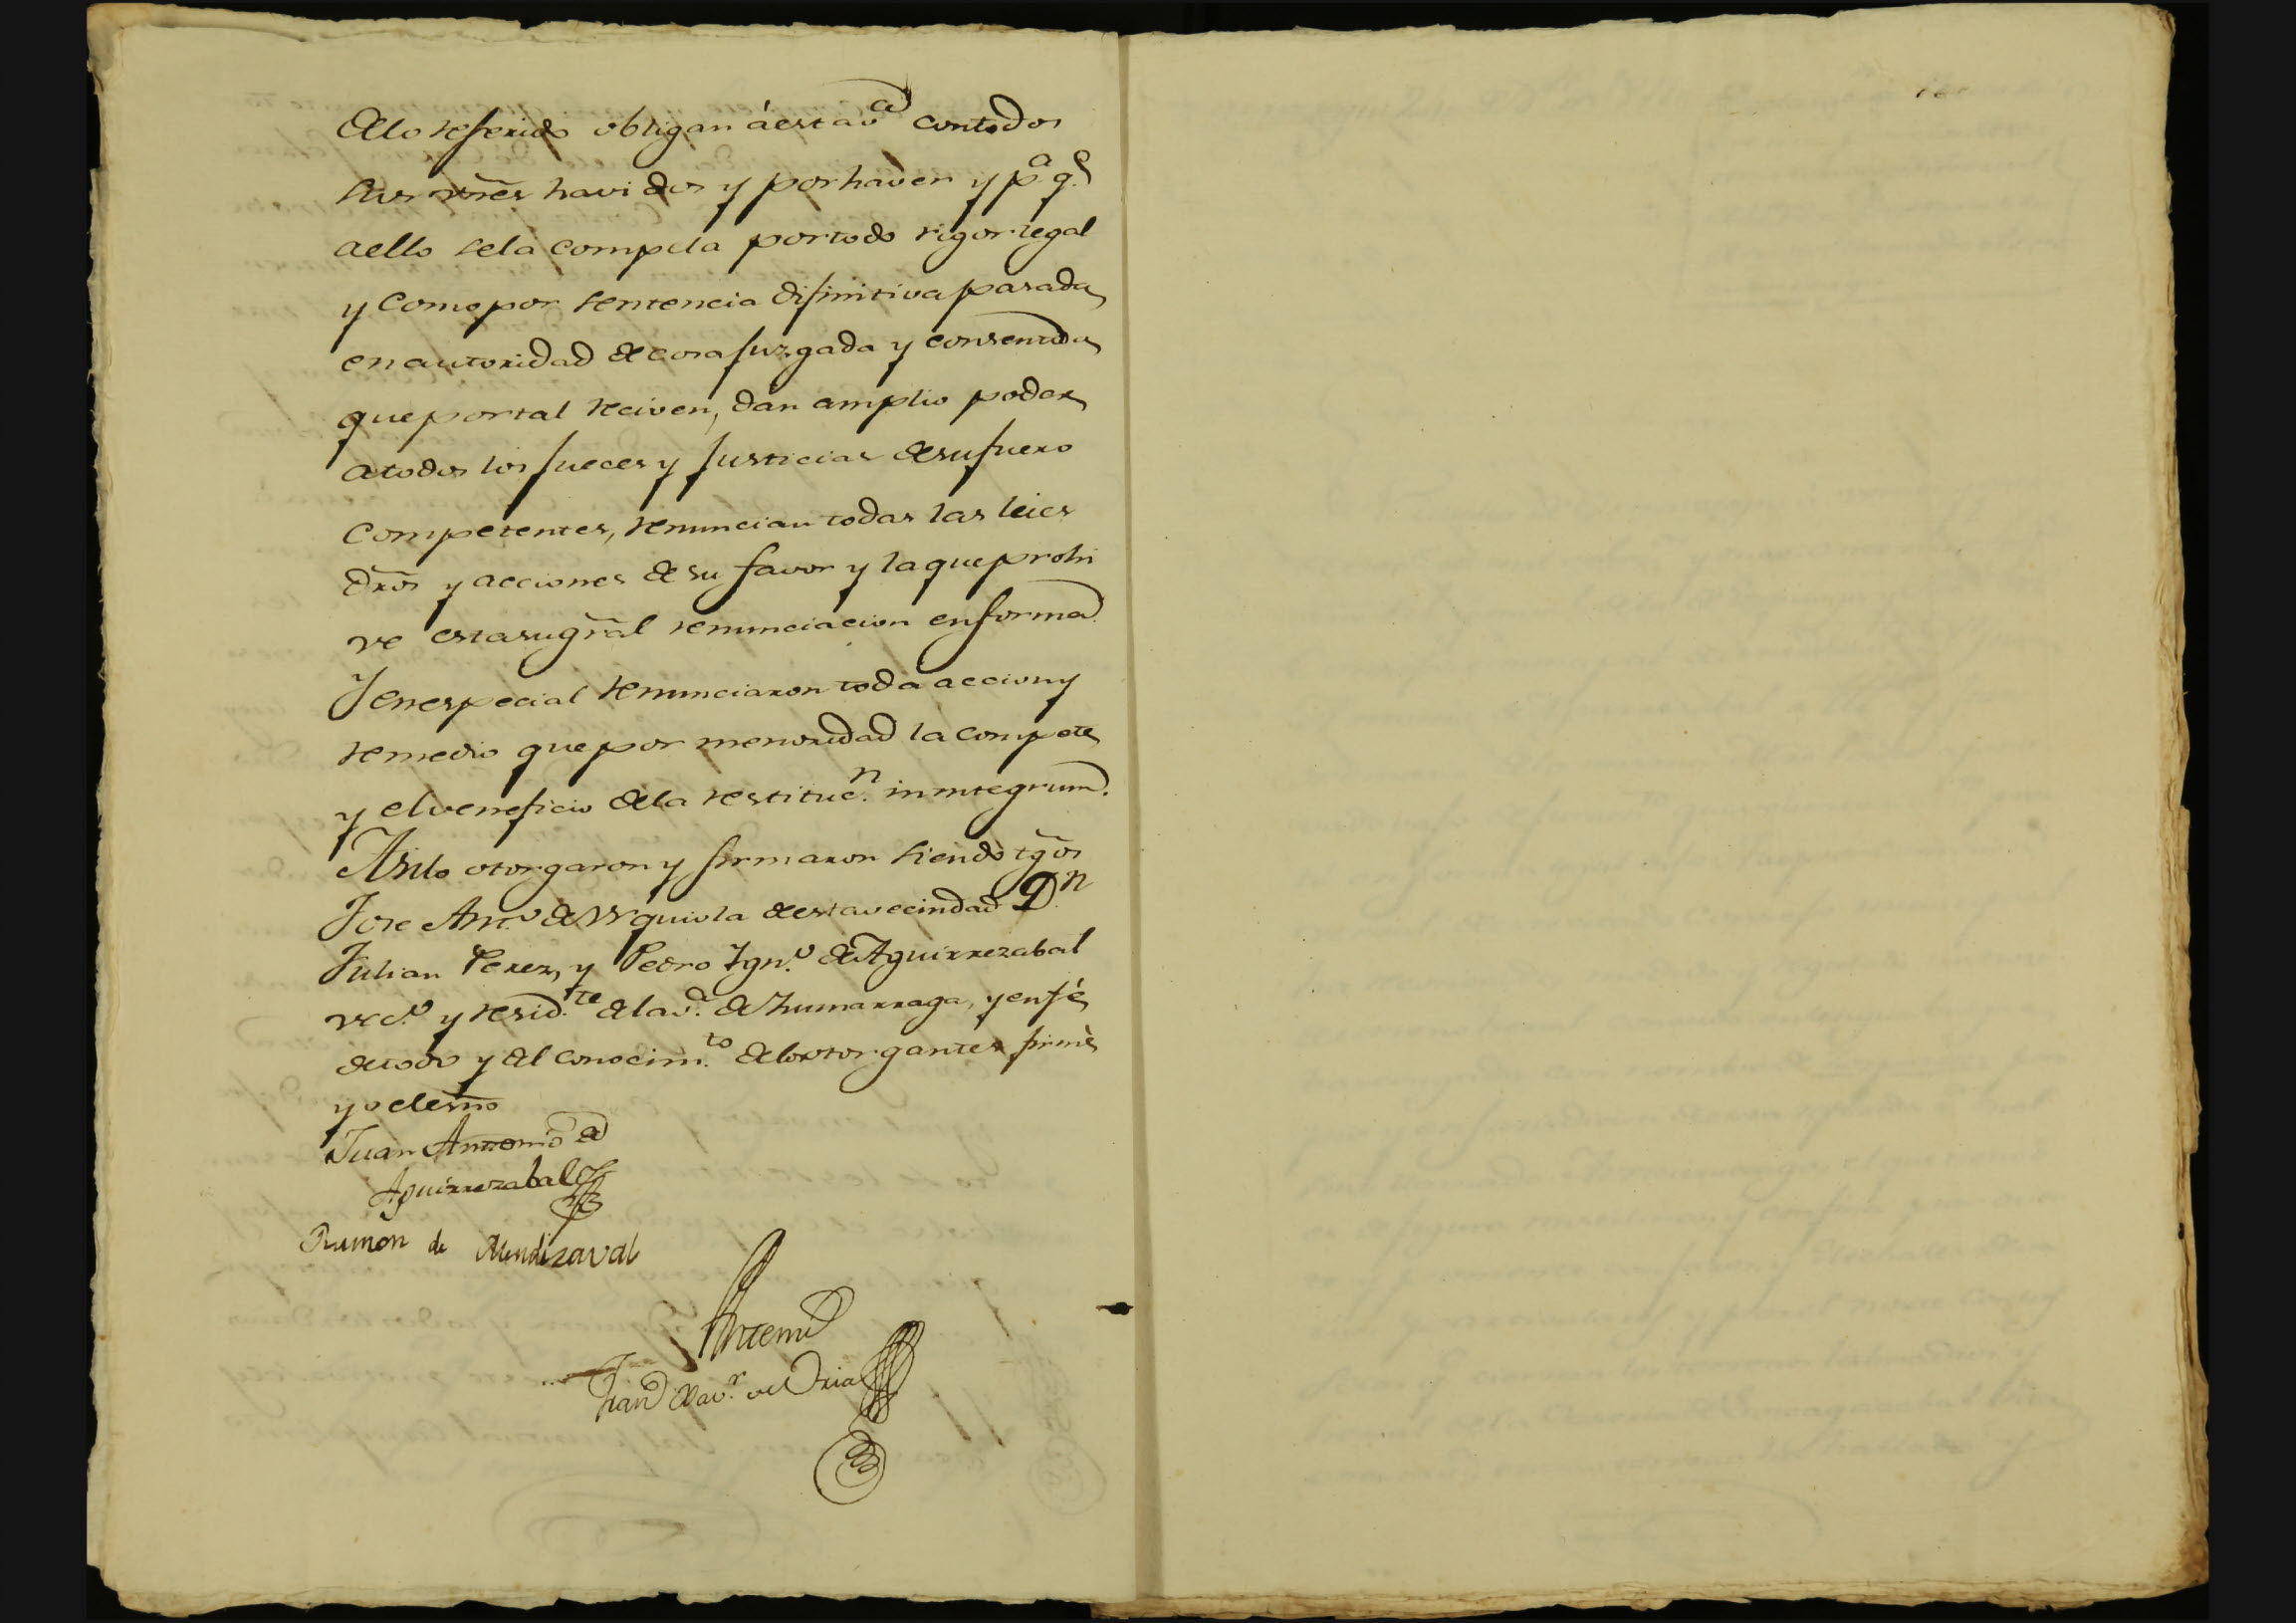 Alo referido obligan á esta v.ª con todos
sus vñes havidos y por haver y p.ª q.e
a ello se la compela por todo rigor legal
y como por sentencia difinitiva pasada
en autoridad de cosa juzgada y consentida
que por tal reciven, dan amplio poder
a todos los jueces y justicias de su fuero
competentes, renuncian todas las leies
dr̃os y acciones de su favor y la que prohi
ve esta su gr̃al renunciacion en forma.
Y en especial renunciaron toda accion y
remedio que por menoridad la compete
y el veneficio de la restituc.n in integrum.
Asilo otorgaron y firmaron siendo tg̃os
Jose Ant.o de Urquiola de esta vecindad D.n
Julian Perez, y Pedro Ign.o de Aguirrezabal
vec.o y resid.te de la v.a de Zumarraga, y en fé
de todo y del conocim.to de los otorgantes firmè
yo el esr̃no
Juan Antonio de
Aguirrezabal
Ramon de Mendizaval
Antemi